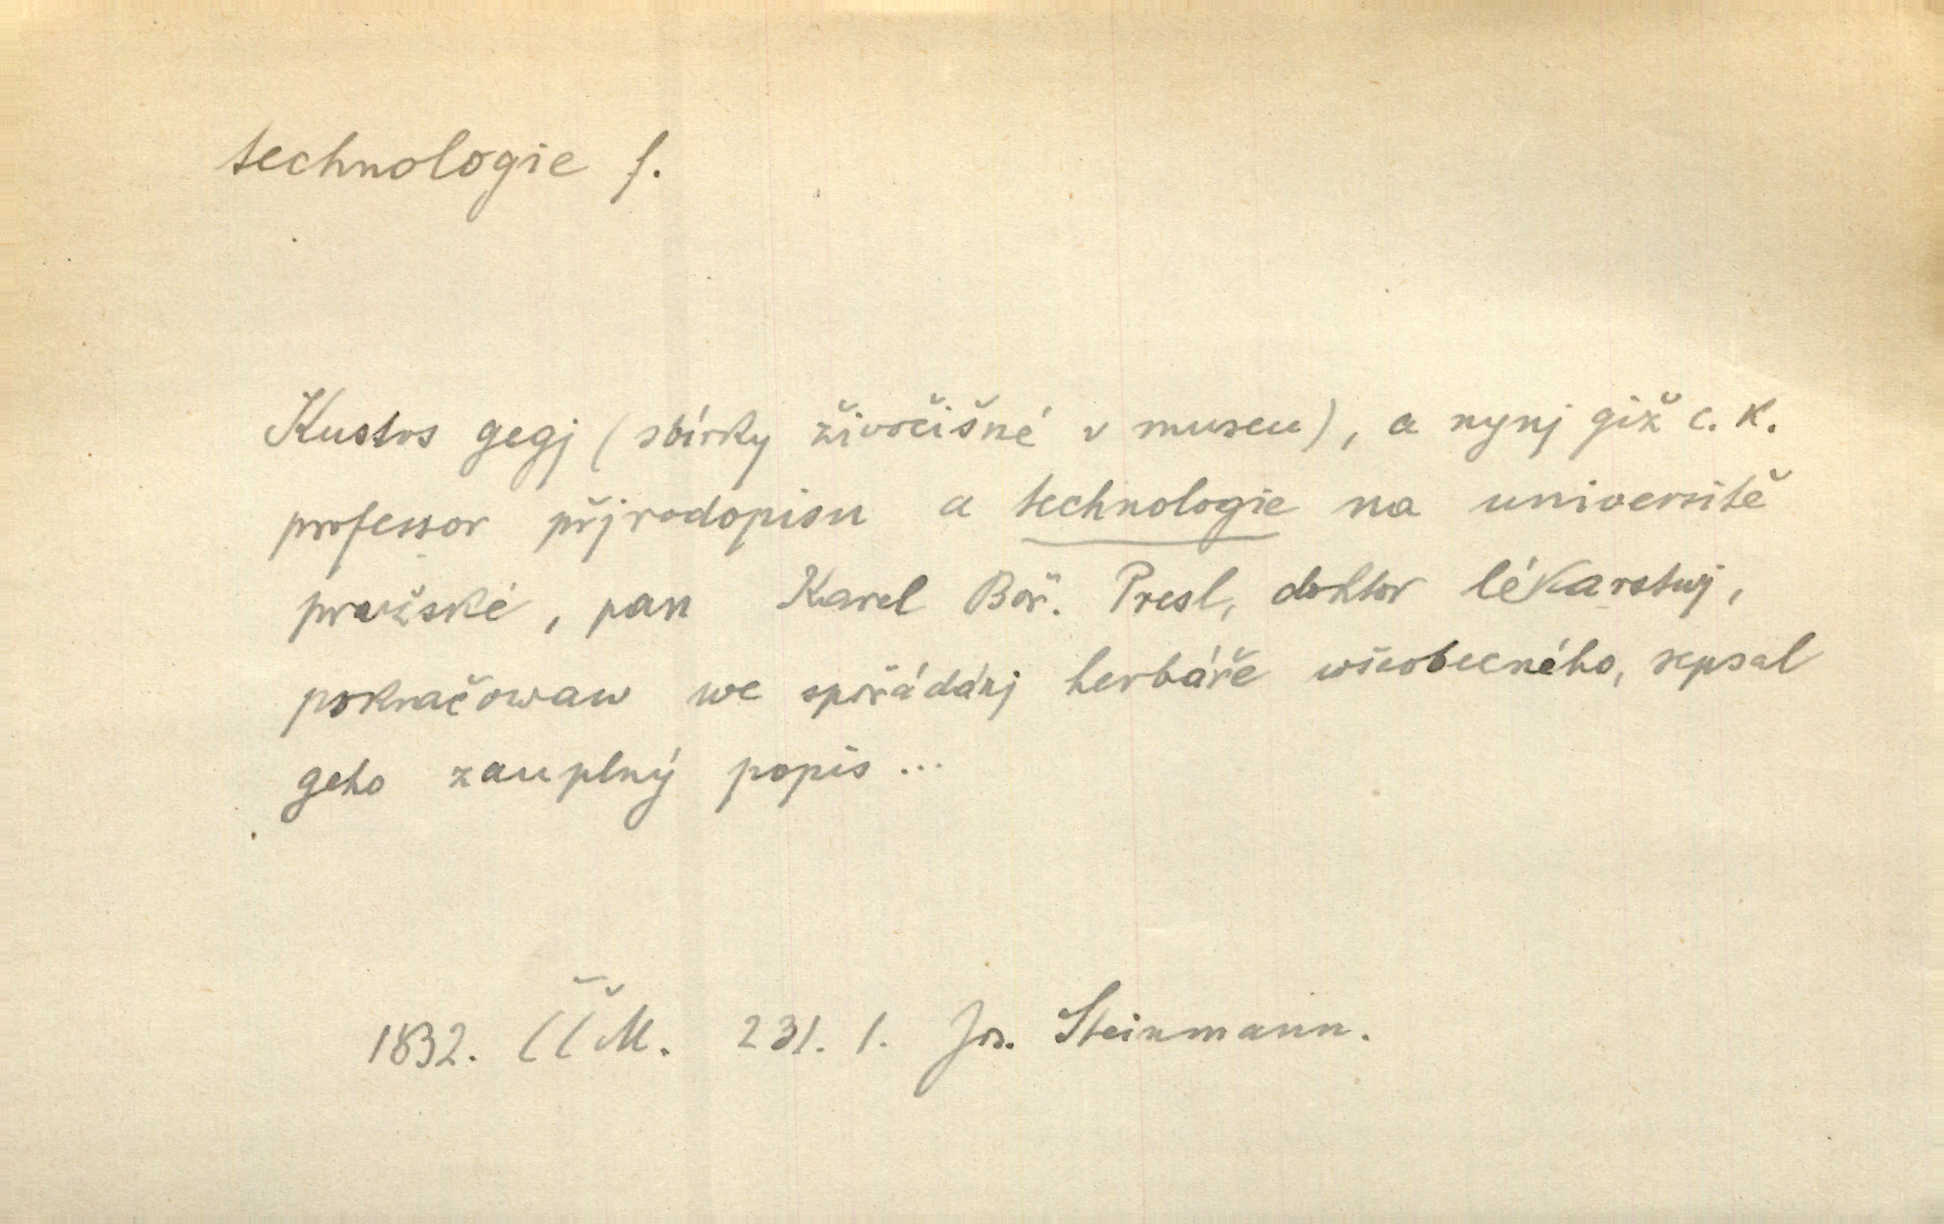 technologie f.
Kustos gegj (sbírky živočišné v museu), a nynj giž c. k.
professor přjrodopisu a technologie na universitě
pražské, pan Karel Boř. Presl, doktor lékarstwj,
pokračowaw we spořádánj herbáře wšeobecného, sepsal
geho zauplný popis...
1832. ČČM. 231. 1. Jos. Steinmann.